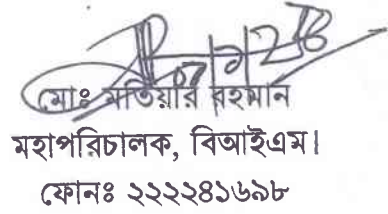 মোঃ মতিয়ার রহমান
মহাপরিচালক, বিআইএম।
ফোনঃ ২২২২৪১৬৯৮